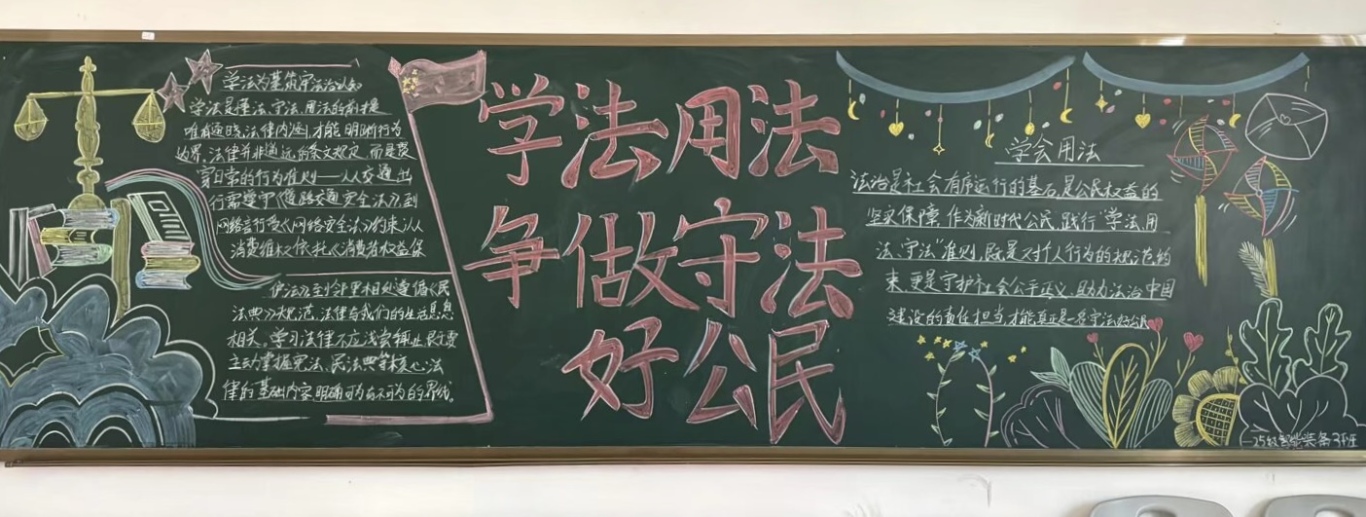 学法为基筑守法治认知
学法是懂法、守法、用法的前提
唯有通晓法律内涵,才能明晰行为
边界。法律并非遥远的条文规定,而是贯
穿日常的行为准则——从交通出
行需遵守《道路交通安全法》,到
网络言行受《网络安全法》约束,从
消费维权依托《消费者权益保
护法》,到邻里相处遵循《民
法典》规范,法律与我们的生活息息
相关。学习法律不应浅尝辄止,民需
主动掌握宪法、民法典等核心法
律的基础内容,明确可为与不可为的界线。
学法用法
争做守法
好公民
学会用法
法治是社会有序运行的基石,是公民权益的
坚实保障,作为新时代公民,践行“学法、用
法、守法”准则,既是对个人行为的规范约
束,更是守护社会公平正义、助力法治中国
建设的责任担当,才能真正是一名守法好公民
25级智能装备3班